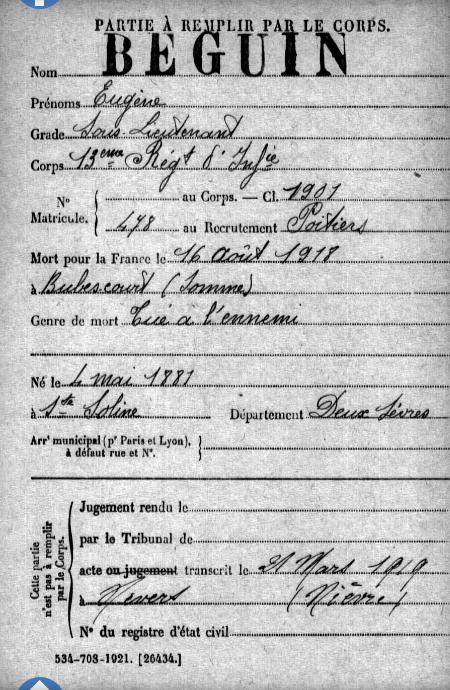 PARTIE À REMPLIR PAR LE CORPS.
Nom BÉGUIN
Prénoms Eugène
Grade Sous-Lieutenant
Corps 13eme Régt d'Infie
No Matricule. { au Corps. — Cl. 1901
478 au Recrutement Poitiers
Mort pour la France le 16 Août 1918
à Bubescourt (Somme)
Genre de mort Tué à l'ennemi
Né le 4 mai 1881
à Ste Soline Département Deux Sèvres
Arrt municipal (pr Paris et Lyon), à défaut rue et No. }
Cette partie n'est pas à remplir par le Corps.
Jugement rendu le
par le Tribunal de
acte ou jugement transcrit le 21 Mars 1919
à Nevers (Nièvre)
No du registre d'état civil
534-708-1921. [26434.]